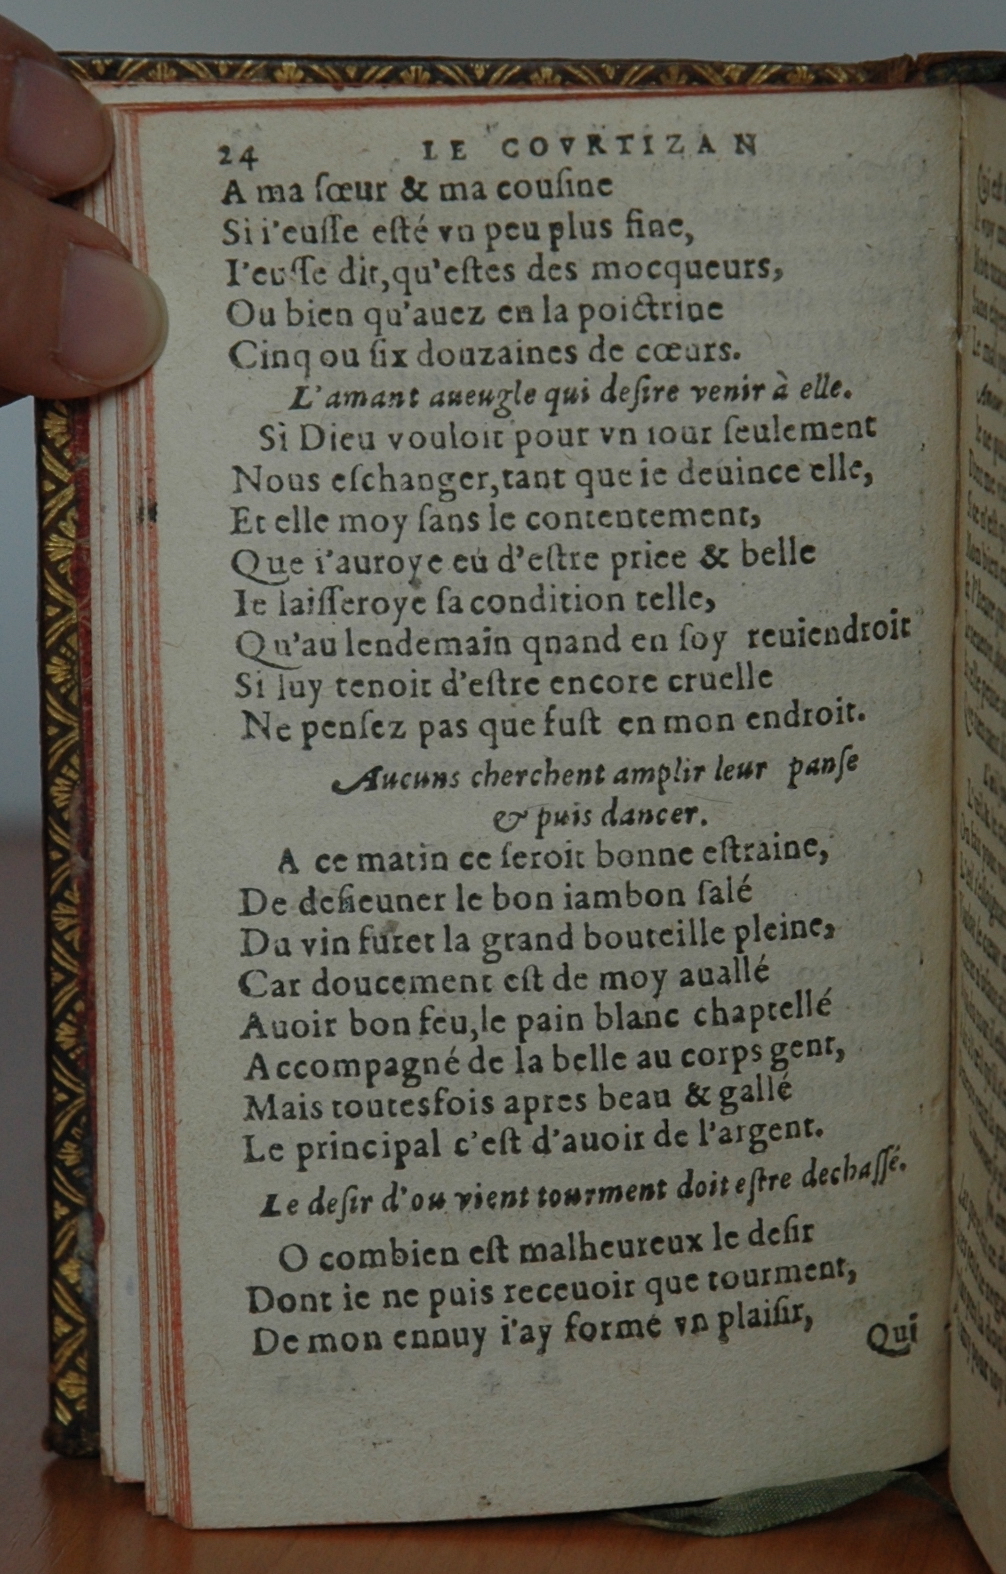 24 LE COVRTIZAN
A ma ſœur & ma couſine
Si i'euſſe eſté vn peu plus fine,
I'euſſe dit, qu'eſtes des mocqueurs,
Ou bien qu'auez en la poictrine
Cinq ou ſix douzaines de cœurs.
L'amant aueugle qui deſire venir à elle.
Si Dieu vouloit pour vn iour ſeulement
Nous eſchanger, tant que ie deuince elle,
Et elle moy ſans le contentement,
Que i'auroye eu d'eſtre priee & belle
Ie laiſſeroye ſa condition telle,
Qu'au lendemain qnand en ſoy reuiendroit
Si luy tenoit d'eſtre encore cruelle
Ne penſez pas que fuſt en mon endroit.
Aucuns cherchent amplir leur panſe
& puis dancer.
A ce matin ce ſeroit bonne eſtraine,
De deſieuner le bon iambon ſalé
Du vin furet la grand bouteille pleine,
Car doucement eſt de moy auallé
Auoir bon feu, le pain blanc chaptellé
Accompagné de la belle au corps gent,
Mais toutesfois apres beau & gallé
Le principal c'eſt d'auoir de l'argent.
Le deſir d'ou vient tourment doit eſtre dechaſſé.
O combien eſt malheureux le deſir
Dont ie ne puis receuoir que tourment,
De mon ennuy i'ay formé vn plaiſir,
Qui